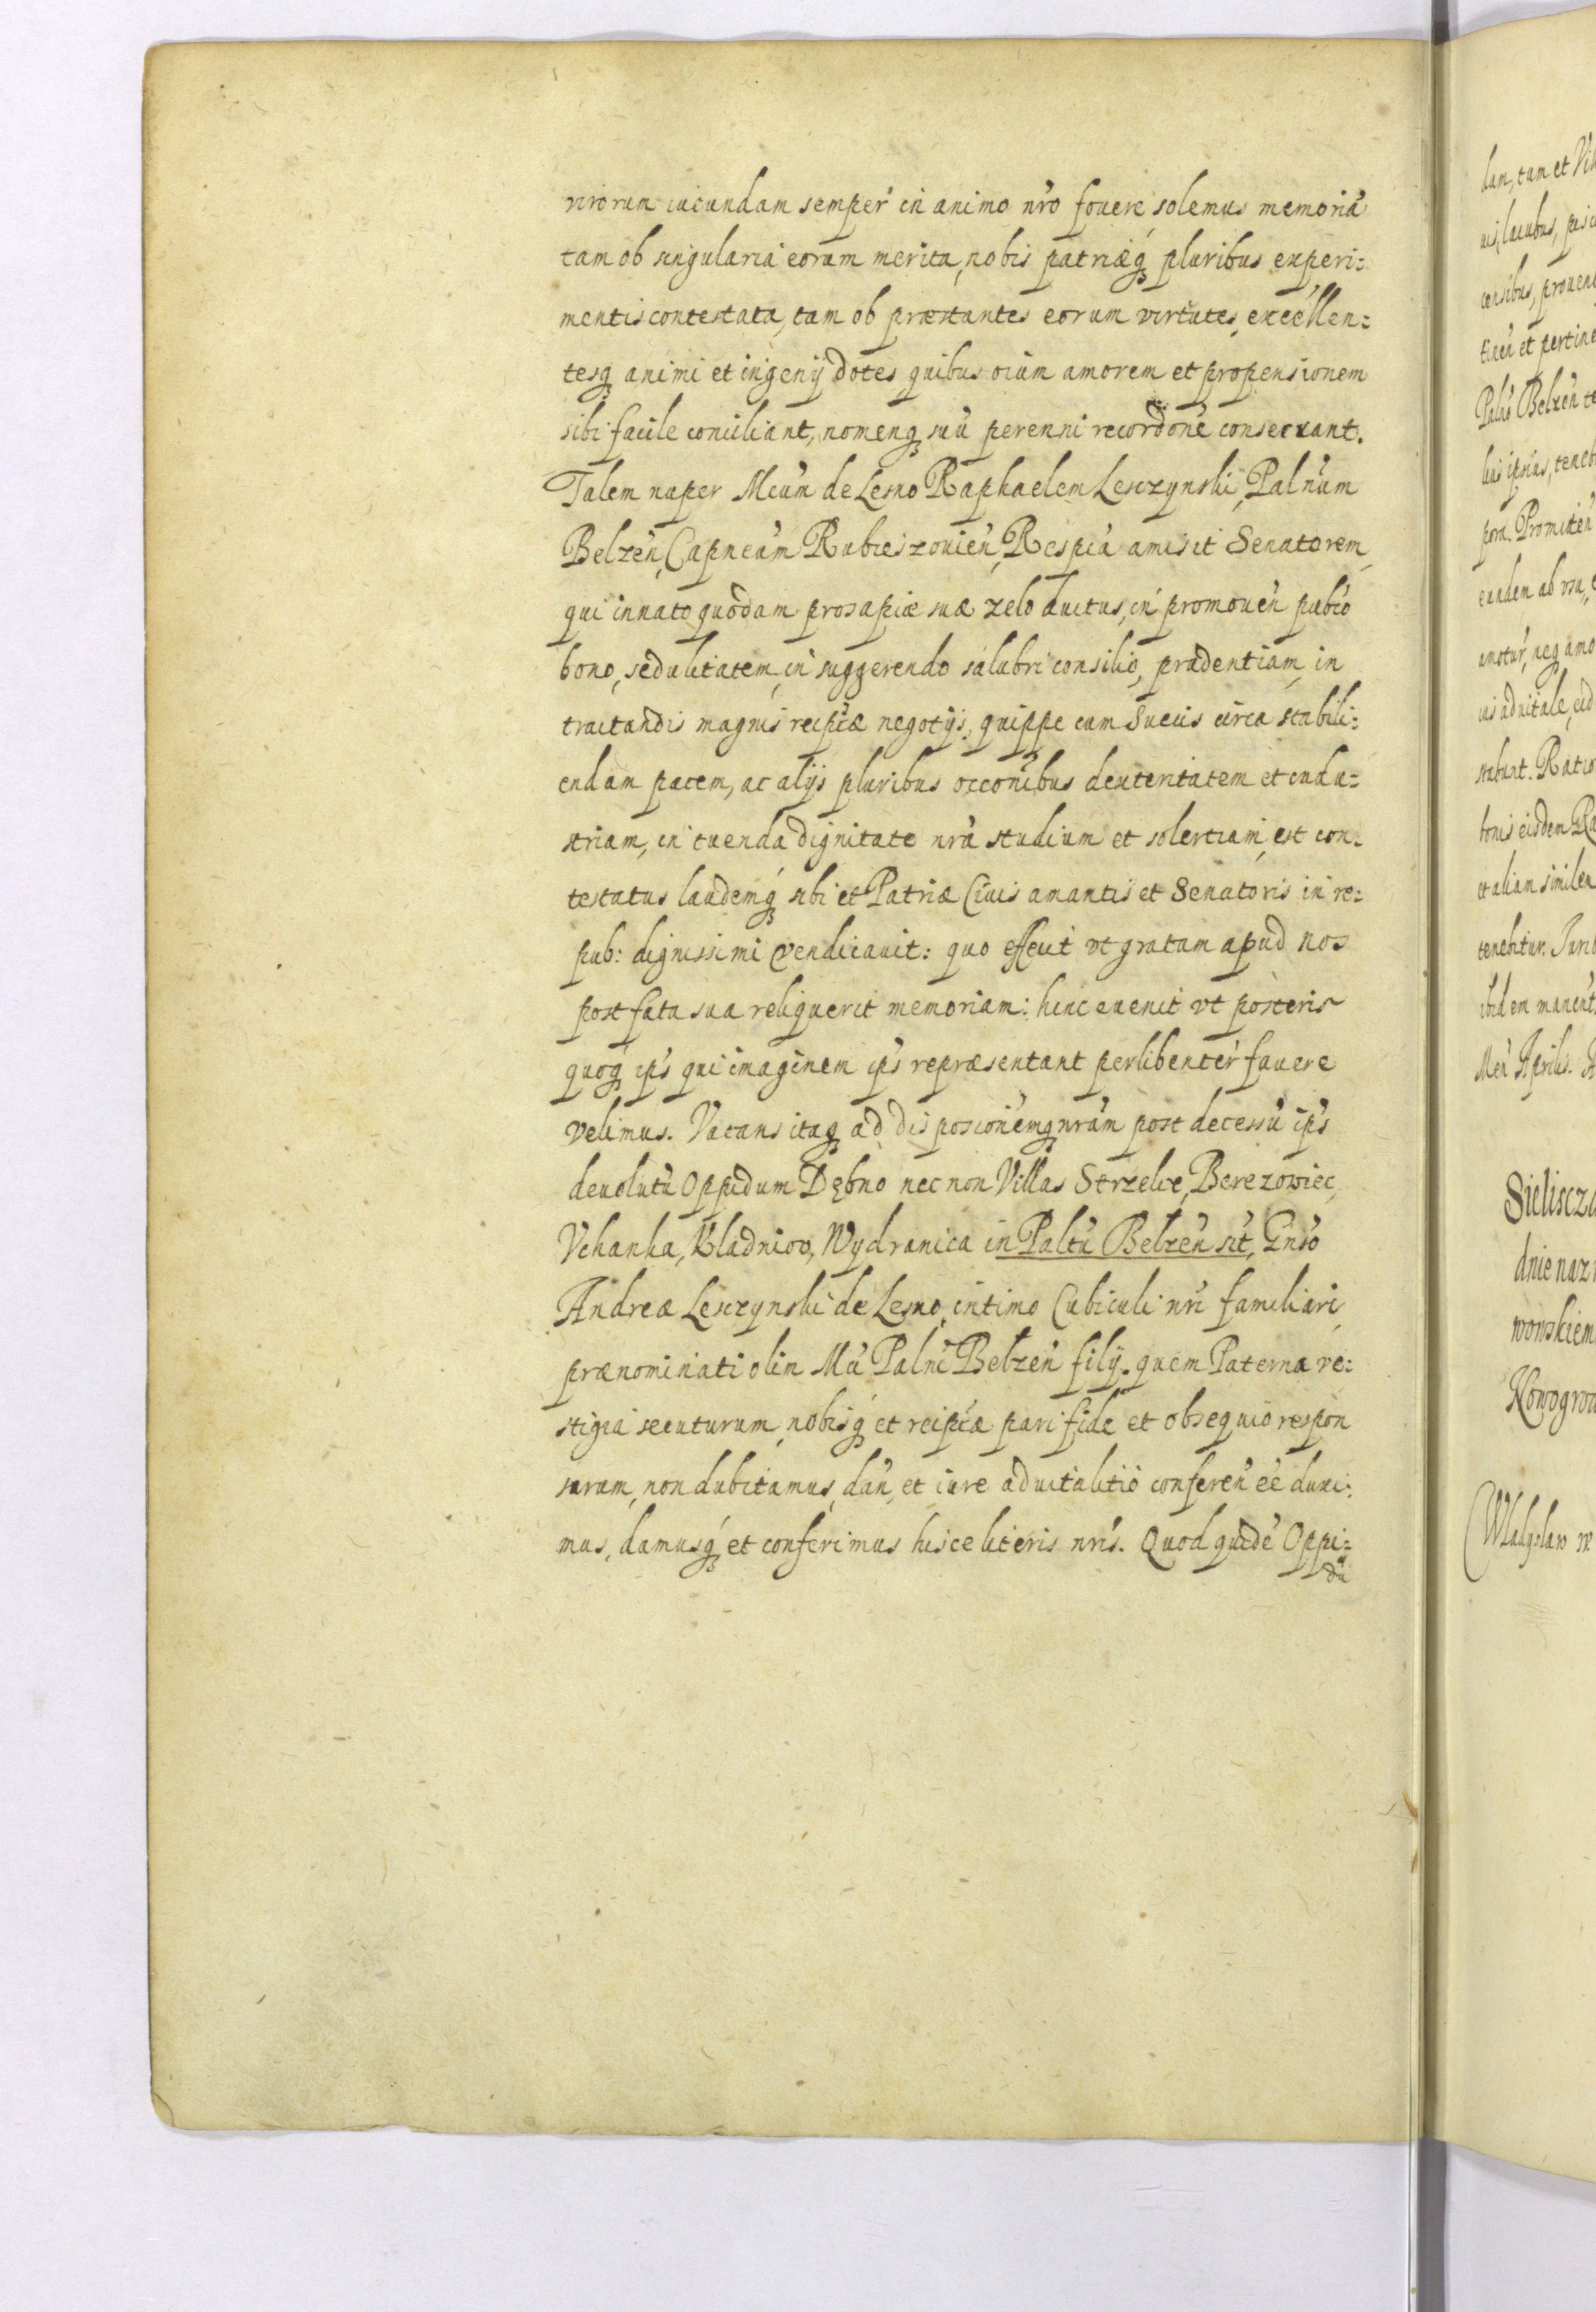 virorum iucundam semper in animo nro fouere solemus memoriã
tam ob singularia eorum merita, nobis patriæq́ pluribus experi:
mentis contestata, tam ob præstantes eorum virtutes, excellen:
tesq́ animi et ingenÿ dotes quibus oium amorem et propensionem
sibi facile conciliant, nomenq́ suũ perenni recordone consecrant.
Talem nuper Mcum de Lesno Raphaelem Lesczynski, Palnum
Belzen, Capneum Rubieszouien, Respca amisit Senatorem,
qui innato quodam prosapiæ suæ zelo ductus, in promouen pubco
bono, sedulitatem, in suggerendo salubri consilio, prudentiam, in
tractandis magnis reipcæ negotÿs, quippe cum Suecis circa stabili:
endam pacem, ac alÿs pluribus occonibus dexteritatem et indu:
striam, in tuenda dignitate nra studium et solertiam, est con:
testatus laudemq́ sibi et Patriæ Ciuis amantis et Senatoris in re:
pub: dignissimi vendicauit: quo effecit vt gratam apud nos
post fata sua reliquerit memoriam: hinc euenit vt posteris
quoq́ ips qui imaginem ips repræsentant perlibenter fauere
velimus. Vacans itaq́ ad disposionemq́ nram post decessũ ips
deuolutũ Oppidum Dębno nec non Villas Strzelce, Berezowiec,
Vchanka, Kladniow, Wydranica in Paltu Belzen sit, Gnso
Andreæ Lesczynski de Lesno, intimo Cubiculi nri familiari,
prænominati olim Mci Palni Belzen filÿ. quem Paterna ve:
stigia secuturum, nobisq́ et reipcæ pari fide et obsequio respon
surum, non dubitamus, dan, et iure aduitalitio conferen ee duxi:
mus, damusq́ et conferimus hisce literis nris. Quod quidẽ Oppi:
dũ
lum, tam et Vil
uis, lacubus, pisc
censibus, prouen
Belzen te
ipsius, teneb
pora. Promitten
eundem ab vsu,
amotur, neq́ amo
ius aduitale, eid
stabunt. Ratio
bonis eisdem Ra
et aliam similem
tenebitur. Jurib
ibidem manent
Men Aprilis. A
Sieliscz
dnie naz
wowskiem
Nowogrod
Wladyslaw w